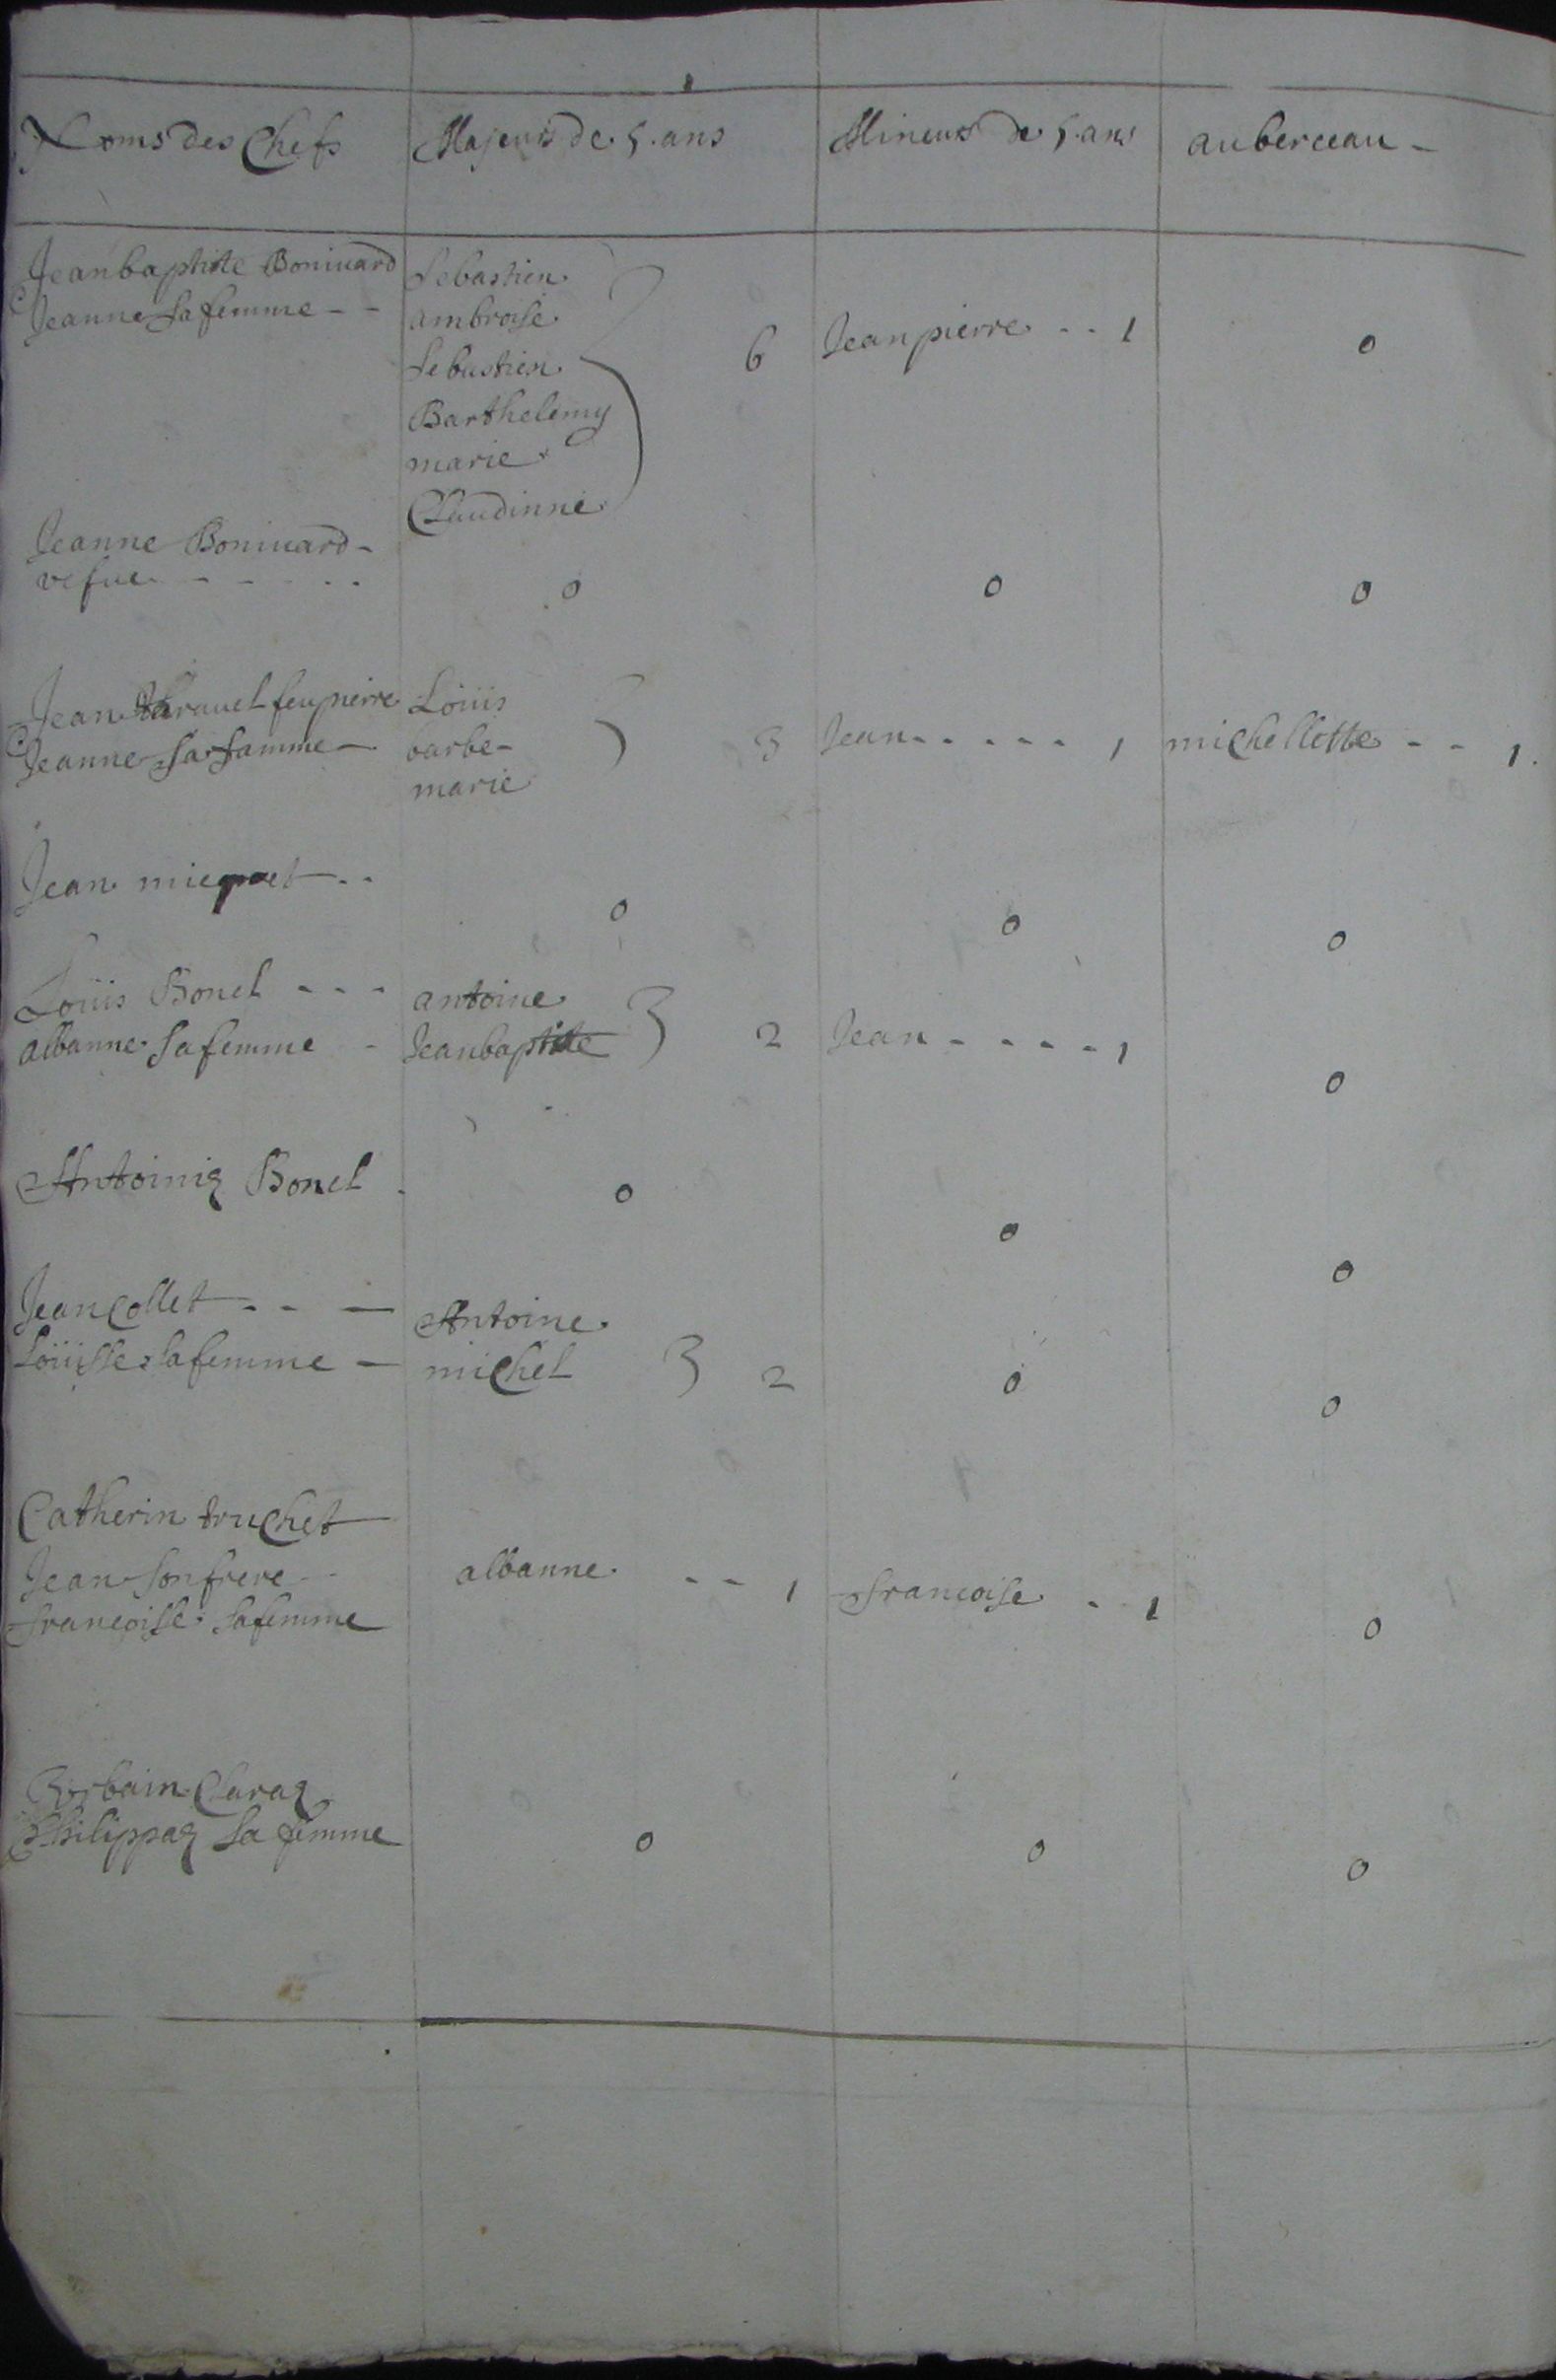 Noms des Chefs Majeurs de 5. ans Mineurs de 5. ans au berceau -
Jean baptiste Boniuard Sebastien
Jeanne sa femme - - ambroise
Sebastien 6 Jean pierre - - 1 0
Barthelemy
marie
Claudinne
Jeanne Boniuard -
vefue - - - - - 0 0 0
Jean feu pierre Loüis
Jeanne sa famme - barbe - 3 Jean - - - - - 1 michellotte - - 1.
marie
Jean - - 0 0 0
Loüis Bonel - - - antoine
albanne sa femme - Jean baptiste 2 Jean - - - - 1 0
Bonel - 0 0 0
Jean Collet - - — Antoine
Loüisse sa femme — michel 2 0 0
Catherin truchet
Jean son frere - - albanne - - 1 francoise - - 1 0
francoise sa femme
sa femme 0 0 0